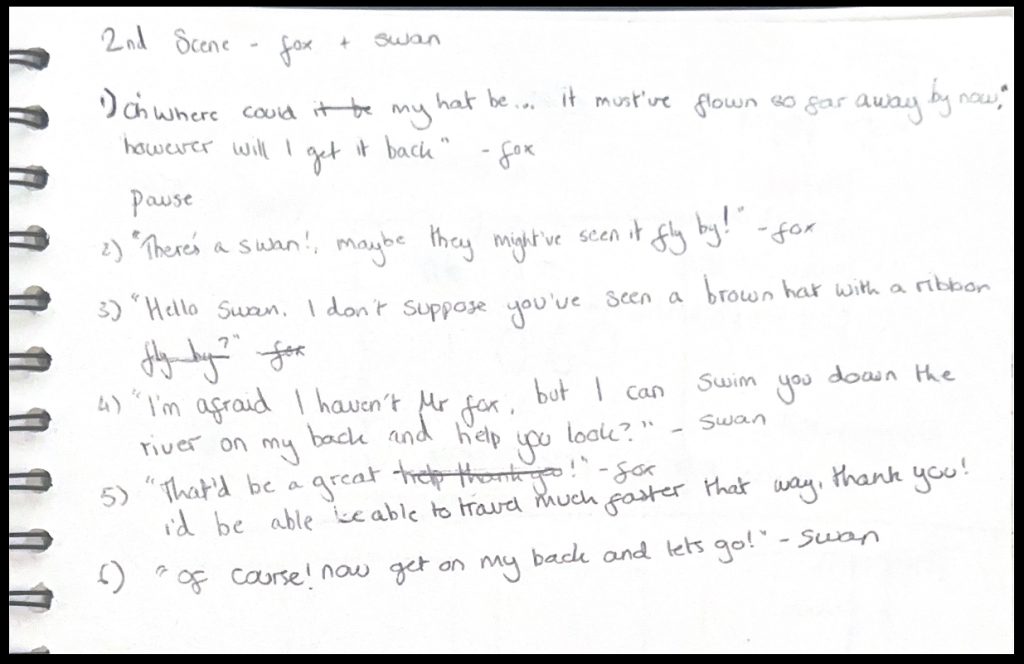 2nd Scene - fox + swan
1) Oh where could it be my hat be... it must've flown so far away by now,"
however will I get it back" - fox
Pause
2) "There's a swan!, maybe they might've seen it fly by!" - fox
3) "Hello Swan. I don't suppose you've seen a brown hat with a ribbon
fly by?" - fox
4) "I'm afraid I haven't Mr fox, but I can swim you down the
river on my back and help you look?" - swan
5) "That'd be a great help thank yo!" - fox
i'd be able be able to travel much faster that way, thank you!
6) "of course! now get on my back and lets go!" - swan